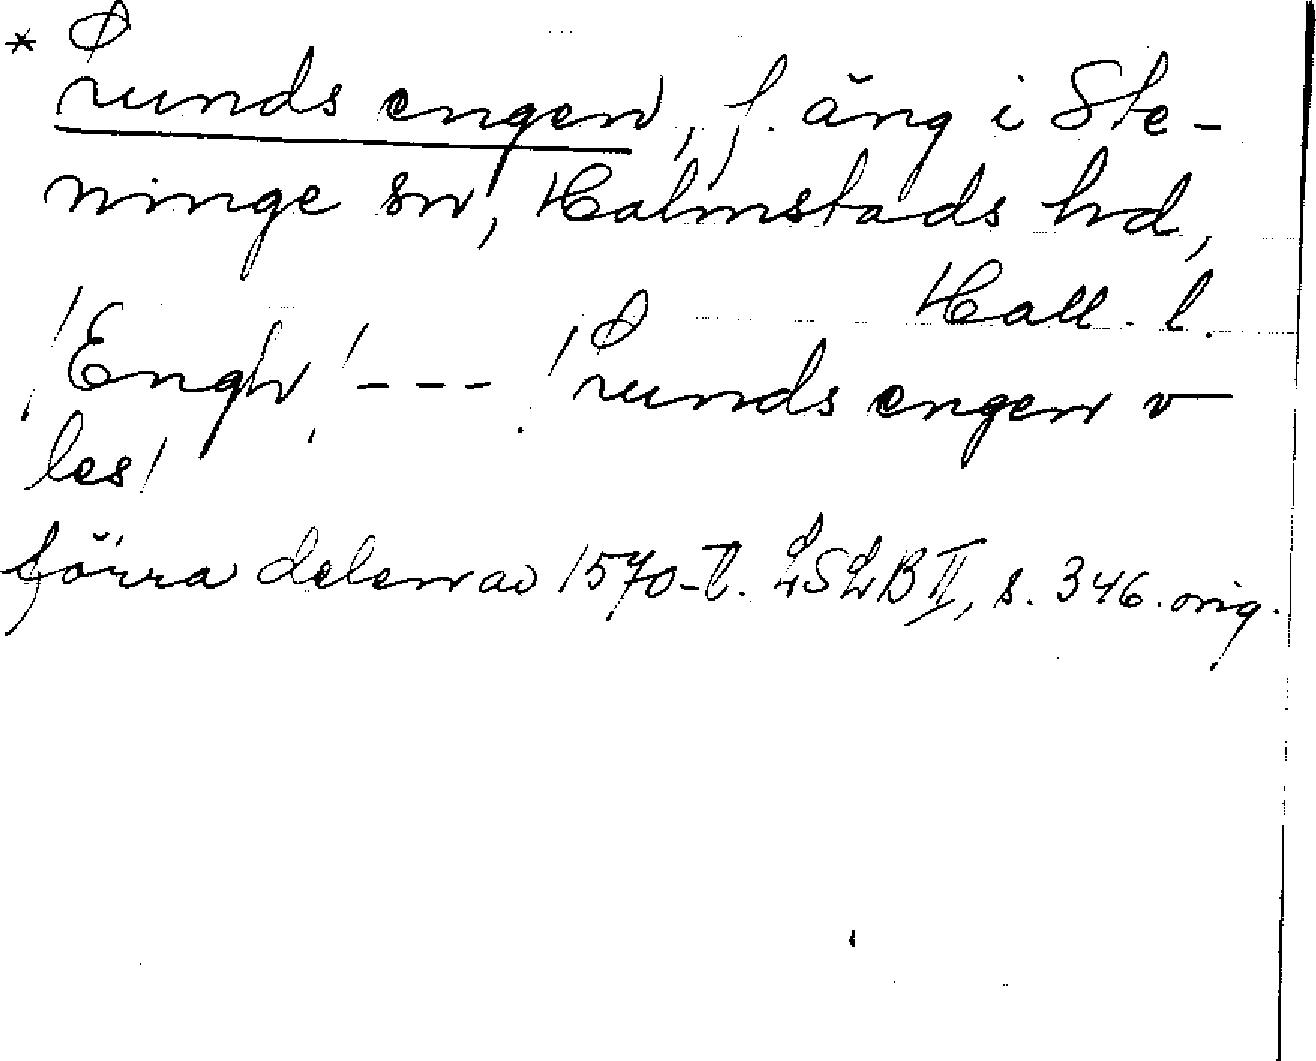 * Ø
runds engen, f. äng i Ste-
ninge sn, Halmstads hd,
Hall. l.
! Engh ! - - - ! Ø runds engen v
les!
förra delen av 1570-t. LSLB II, s. 346. orig.